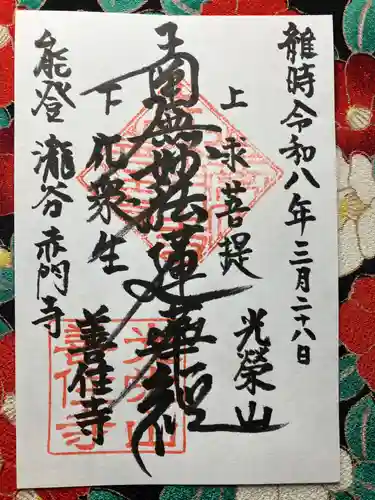 維時令和八年三月二十八日
上求菩提
光榮山
南無妙法蓮華經
下化衆生
善住寺
能登 瀧谷 赤門寺
光榮山
善住寺